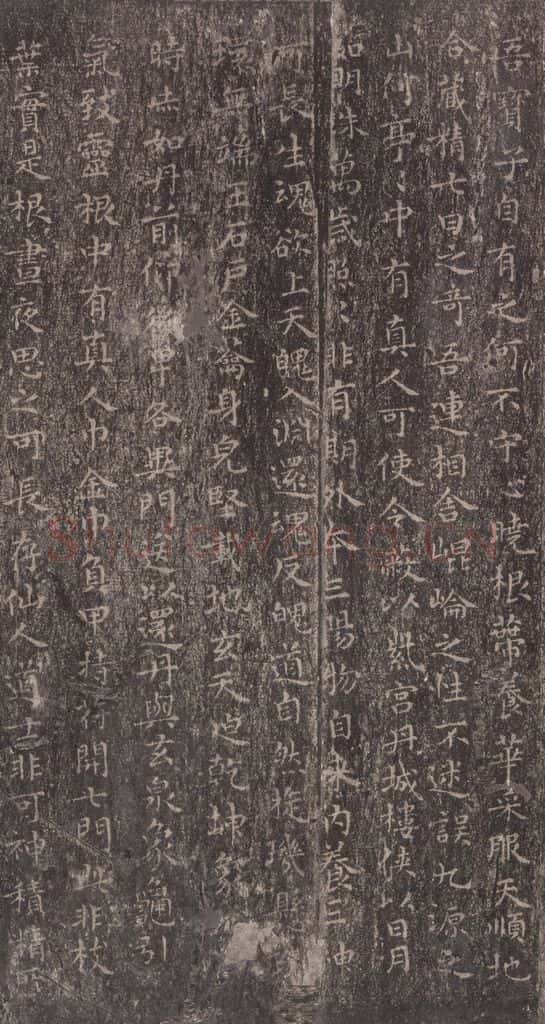 吾寶子自有之何不守心曉根蔕養華采服天順地
合藏精七日之奇吾連相舍崐崘之性不迷誤九源之
山何亭〻中有真人可使令蔽以紫宮丹城樓俠以日月
如明珠萬歲照〻非有期外本三陽物自来內養三神
可長生魂欲上天魄入淵還魂反魄道自然旋璣懸
環無端玉石戶金籥身完堅載地玄天迫乾坤象
時赤如丹前仰後卑各異門送以還丹與玄泉象龜引
氣致靈根中有真人巾金巾負甲持符開七門此非枝
葉實是根晝夜思之可長存仙人道士非可神積精所
Shufawang.CN